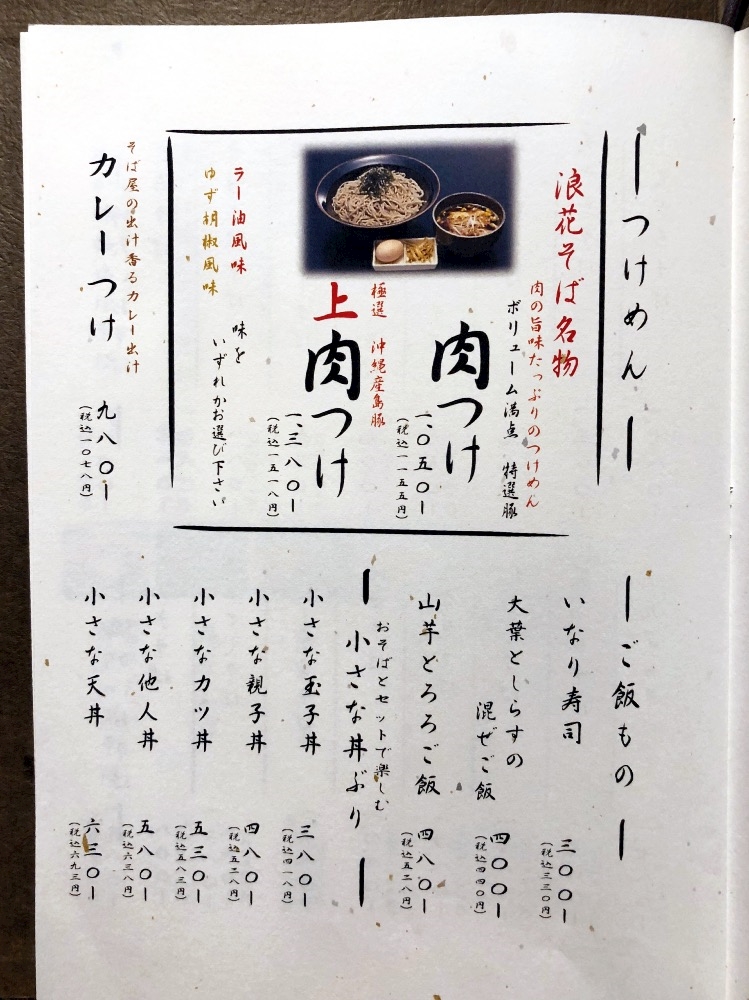 ーつけめんー
浪花そば名物
肉の旨味たっぷりのつけめん
ボリューム満点 特選豚
肉つけ
一、〇五〇ー
(税込一一五五円)
極選 沖縄産島豚
上肉つけ
一、三八〇ー
(税込一五一八円)
ラー油風味
ゆず胡椒風味
味を
いずれかお選び下さい
そば屋の出汁香るカレー出汁
カレーつけ
九八〇ー
(税込一〇七八円)
ーご飯ものー
いなり寿司
三〇〇ー
(税込三三〇円)
大葉としらすの
混ぜご飯
四〇〇ー
(税込四四〇円)
山芋とろろご飯
四八〇ー
(税込五二八円)
おそばとセットで楽しむ
ー小さな丼ぶりー
小さな玉子丼
三八〇ー
(税込四一八円)
小さな親子丼
四八〇ー
(税込五二八円)
小さなカツ丼
五三〇ー
(税込五八三円)
小さな他人丼
五八〇ー
(税込六三八円)
小さな天丼
六三〇ー
(税込六九三円)